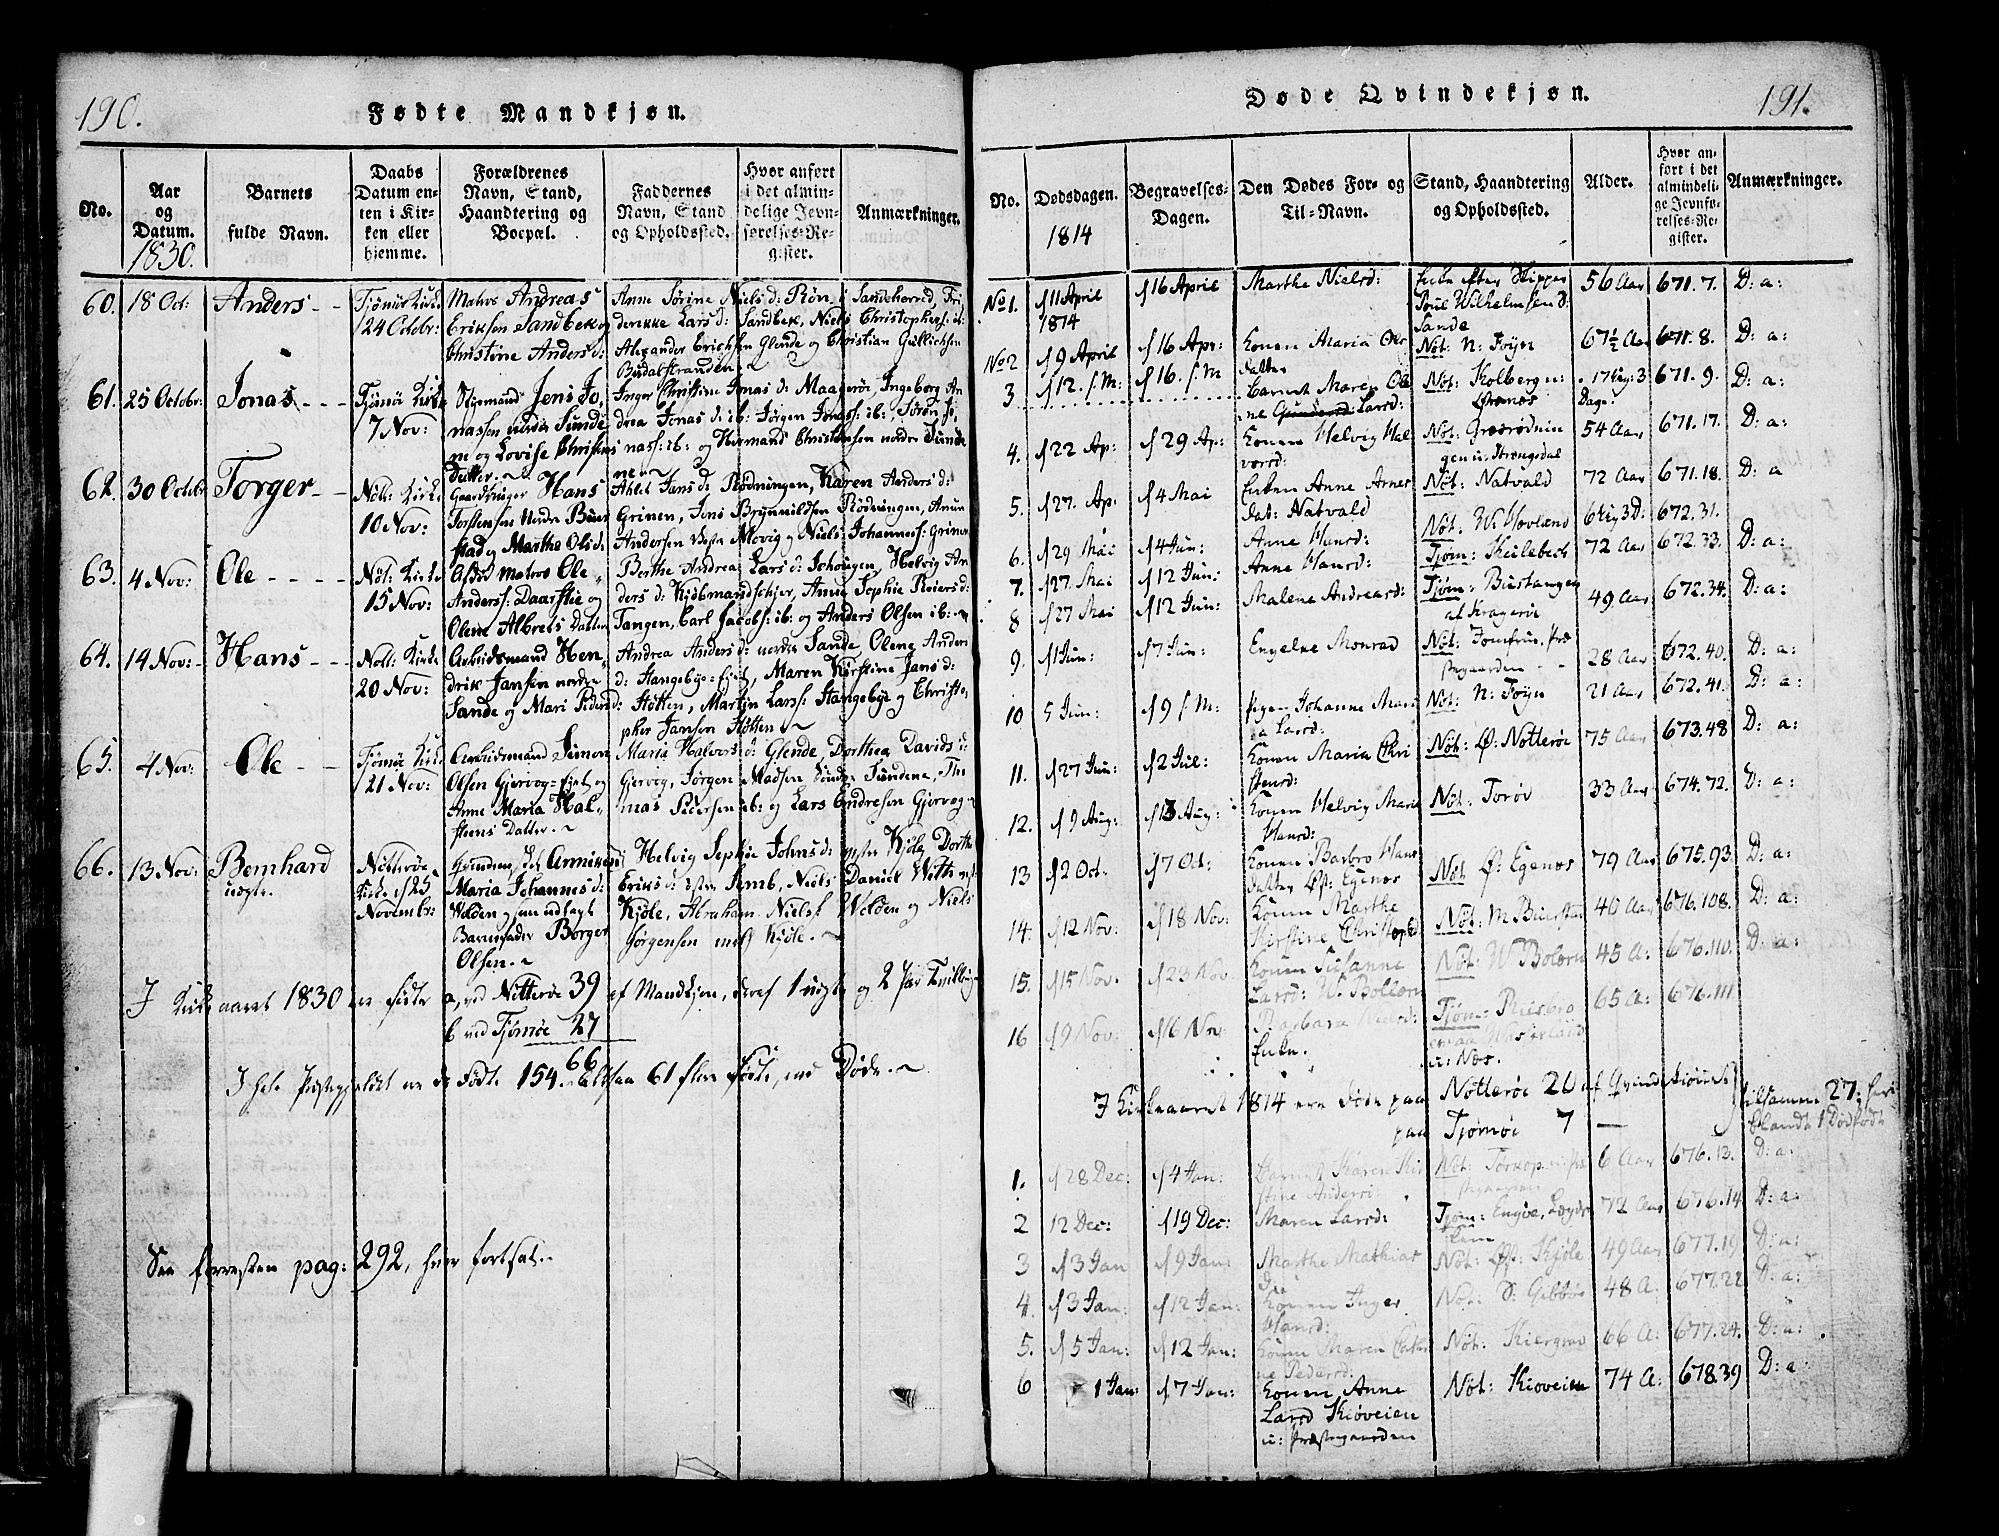 190.
Fødte Mandkjøn.
No.
Aar
og
Datum.
1830.
Barnets
fulde Navn.
Daabs
Datum en-
ten i Kir-
ken eller
hjemme.
Forældrenes
Navn, Stand,
Haandtering og
Boepæl.
Faddernes
Navn, Stand
og Opholdssted.
Hvor anført
i det almin-
delige Jevn-
førelses-Re-
gister.
Anmærkninger.
60. 18 Oct: Anders
Tjömö Kirke
24 Octobr:
Matros Andreas
Eriksen Sandbek og
Christine Anders d:
Anne Sörine Niels d: Røn i Sandeherred, Fri
derikke Lars d: Sandbek, Niels Christophers: ib:
Alexander Erichsen Glende og Christian Gullichsen
Budalstranden
61. 25 Octobr: Jonas
Tjömö Kirke
7 Nov:
Styrmand Jens Jo
nassen nordre Sunde
n og Lovise Christens
Datter.
Inger Christine Jonas d: Maageröi, Ingeborg An
drea Jonas d: ib: Jörgen Jonass: ib:, Sören Jo
nass: ib: og Hermand Christensen nordre Sunde
ne
62. 30 Octobr Torger
Nött: Kirke
10 Nov:
Gaardbruger Hans
Torstensen Nordre Buer
stad og Marthe Ols d:
Ahlet Jans d: Rödningen, Karen Anders d:
Grinen, Jens Brynnildsen Rödningen, Amun
Andersen vestre Movig og Niels Johanness: Grinen
63. 4 Nov: Ole
Nöt: Kirke
15 Nov:
Afdöd Matros Ole
Anderss: Daarstie og
Olene Albrets Datter
Berthe Andrea Lars d: Helvig An
ders d: Kjöbmandskjer, Anne Sophie Reiers d:
Tangen, Carl Jacobs: ib: og Anders Olsen ib:
64. 14 Nov: Hans
Nött: Kirke
20 Nov:
Arbeidsmand Hen
drik Jansen nordre
Sande og Mari Peders d:
Andrea Anders d: nordre Sande, Olene Anders
d: Stangebye-Eiet, Maren Kirstine Jans d:
Støtten, Martin Larss: Stangebye og Christo
pher Jansen Støtten
65. 4 Nov: Ole
Tjömö Kirke
21 Nov:
Arbeidsmand Simon
Olsen Gjervog-Eiet og
Anne Maria Hal
steens Datter.
Maria Halvors d: Glende, Dorthea Davids d:
Gjervog, Jörgen Madsen Söndre Sundene, Th
mas Pedersen ib: og Lars Endresen Gjervog
66. 13 Nov: Bernhard
uægte.
Nötteröe
Kirke, 25
Novembr:
Anniken
Maria Johannes d:
Wolden og som udlagt
Barnefader Börger
Olsen.
Helvig Sophie Johns d: vestre Kjöle, Dorthe
Eriks d: vestre Semb, Niels Daniel With vest
Kjöle, Abraham Nielss Wolden og Niels
Jörgensen mell Kjöle.
I Kirkeaaret 1830 er födte a, ved Nötteröe 39 af Mandkjön, deraf 1 uægte og 2 Par Tvillinger
b ved Tjömöe 27
66
I hele Præstegjeldet er d födte 154. altsaa 61 flere Födte, end Döde.
See forresten pag: 292, hvor fortsat.
Døde Qvindekjøn.
191.
No.
Dødsdagen.
1814
Begravelses-
Dagen.
Den Dødes For- og
Til-Navn.
Stand, Haandtering
og Opholdssted.
Alder.
Hvor an-
ført i det
almindeli-
ge Jevnfø-
relses-Re-
gister.
Anmærkninger.
No 1. 11 April 1814 16 April Marthe Nielsd: Enke efter Skipper Poul Wilhelmsen S: Sande 56 Aar 671. 7. D: a:
No 2 9 April 16 Apr: Konen Maria Ols datter Nöt: N: Foyn 67½ Aar 671. 8. D: a:
3 12. s. M: 16. s. M Barnet Maren Ole ne Larsd: Nöt: Kolberg 671. 9. D: a:
4. 22 Ap: 29 Ap: Konen Helvig Hal vorsd: Nöt: Græsrödnin gen u: Strengsdal 54 Aar 671. 17. D: a:
5. 27. Ap: 4 Mai Enken Anne Arnes dat: Natvald Nöt: Natvald 72 Aar 671. 18. D: a
6. 29 Mai 4 Jun: Anne Hansd: Nöt: W: Hovland 672. 31.
7. 27. Mai 12 Jun: Anne Hansd: Tjöm: 72 Aar 672. 33. D: a:
8 27 Mai 12 Jun: Malene Andreasd: Tjöm: Bustangen af Krageröe 49 Aar 672. 34. D: a:
9. 1 Jun: 7 Jun: Engelke Monrad Nöt: Jomfrue, Præ stegaarden 28 Aar 672. 40. D: a:
10 5 Jun: 9 s. M: Pigen Johanne Mari a Larsd: Nöt: N: Foyn 21 Aar 672. 41. D: a:
11. 27 Jun: 2 Jul: Konen Maria Chri stensd: Nöt: Ø: Nötteröe 75 Aar 673. 48 D: a:
12. 9 Aug: 13 Aug: Konen Helvig Maria Hansd: Nöt: Toröv 33 Aar 674. 72. D: a:
13 2 Oct. 7 Oct: Konen Barbro Hans datter Øst: Egenæs Nöt: Ø: Egenæs 79 Aar 675. 93. D: a:
14. 12 Nov: 18 Nov: Konen Marthe Kirstine Christophd Nöt: M Buerstad 40 Aar 676. 108. D: a:
15. 15 Nov. 23 Nov. Konen Susanne Larsd: W. Bollæren Nöt: W Bolærn 45 A: 676. 110. D: a:
16 9 Nov: 16 Nov: Barbara Nielsd: Enke. Tjöm: u: Næs. 65 A: 676. 111
I Kirkeaaret 1814 ere döde paa Nötteröe 20 af Qvindekiönnet
paa Tjömöe 7
tilsammen 27, heri
blandt 1 Dödfödt
1. 28 Dec: 4 Jan: Barnet Karen Kir stine Andersd: Nöt: Torkop 6 Aar 676. 13. D: a:
2 12 Dec: 19 Dec: Maren Larsd: Tjöm: Engöe, Lægds lem 72 Aar 676. 14 D: a:
3 3 Jan 9 Jan: Marthe Mathias d: Nöt: Øst: Kjöle 49 Aar 677. 19 D: a:
4. 3 Jan: 12 Jan: Konen Inger Hansd: Nöt: S: Gibböe 48 A: 677. 22 D: a:
5. 5 Jan: 12 Jan: Konen Maren Cathri ne Pedersd: Nöt: Kiergrav 66 A: 677. 24. D: a:
6 1 Jan: 7 Jan: Konen Anne Larsd Kiöveien u: Præstegaarden Nöt: Kioveien 74 A: 678. 39 D: a: